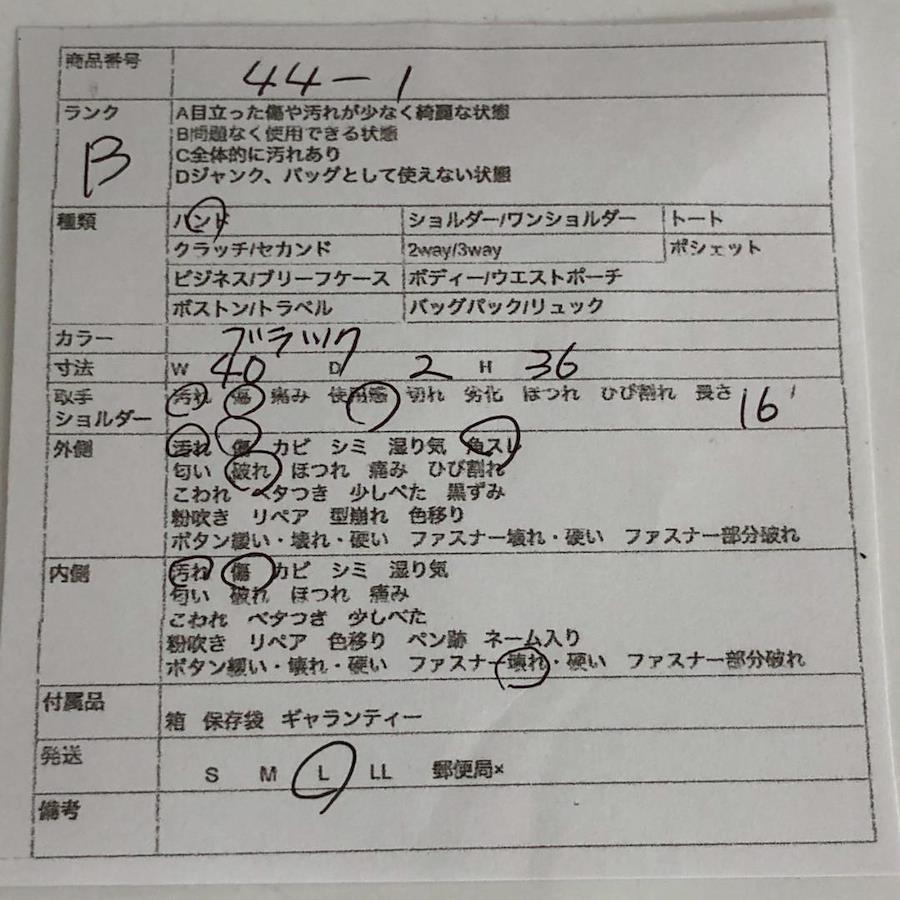 商品番号 44-1
ランク B
A目立った傷や汚れが少なく綺麗な状態
B問題なく使用できる状態
C全体的に汚れあり
Dジャンク、バッグとして使えない状態
種類 ハンド ショルダー/ワンショルダー トート
クラッチ/セカンド 2way/3way ポシェット
ビジネス/ブリーフケース ボディー/ウエストポーチ
ボストン/トラベル バッグパック/リュック
カラー ブラック
寸法 W 40 D 2 H 36
取手 汚れ 傷 痛み 使用感 切れ 劣化 ほつれ ひび割れ 長さ 16
ショルダー
外側 汚れ 傷 カビ シミ 湿り気 角スレ
匂い 破れ ほつれ 痛み ひび割れ
こわれ ベタつき 少しべた 黒ずみ
粉吹き リペア 型崩れ 色移り
ボタン緩い・壊れ・硬い ファスナー壊れ・硬い ファスナー部分破れ
内側 汚れ 傷 カビ シミ 湿り気
匂い 破れ ほつれ 痛み
こわれ ベタつき 少しべた
粉吹き リペア 色移り ペン跡 ネーム入り
ボタン緩い・壊れ・硬い ファスナー壊れ・硬い ファスナー部分破れ
付属品
箱 保存袋 ギャランティー
発送
S M L LL 郵便局×
備考